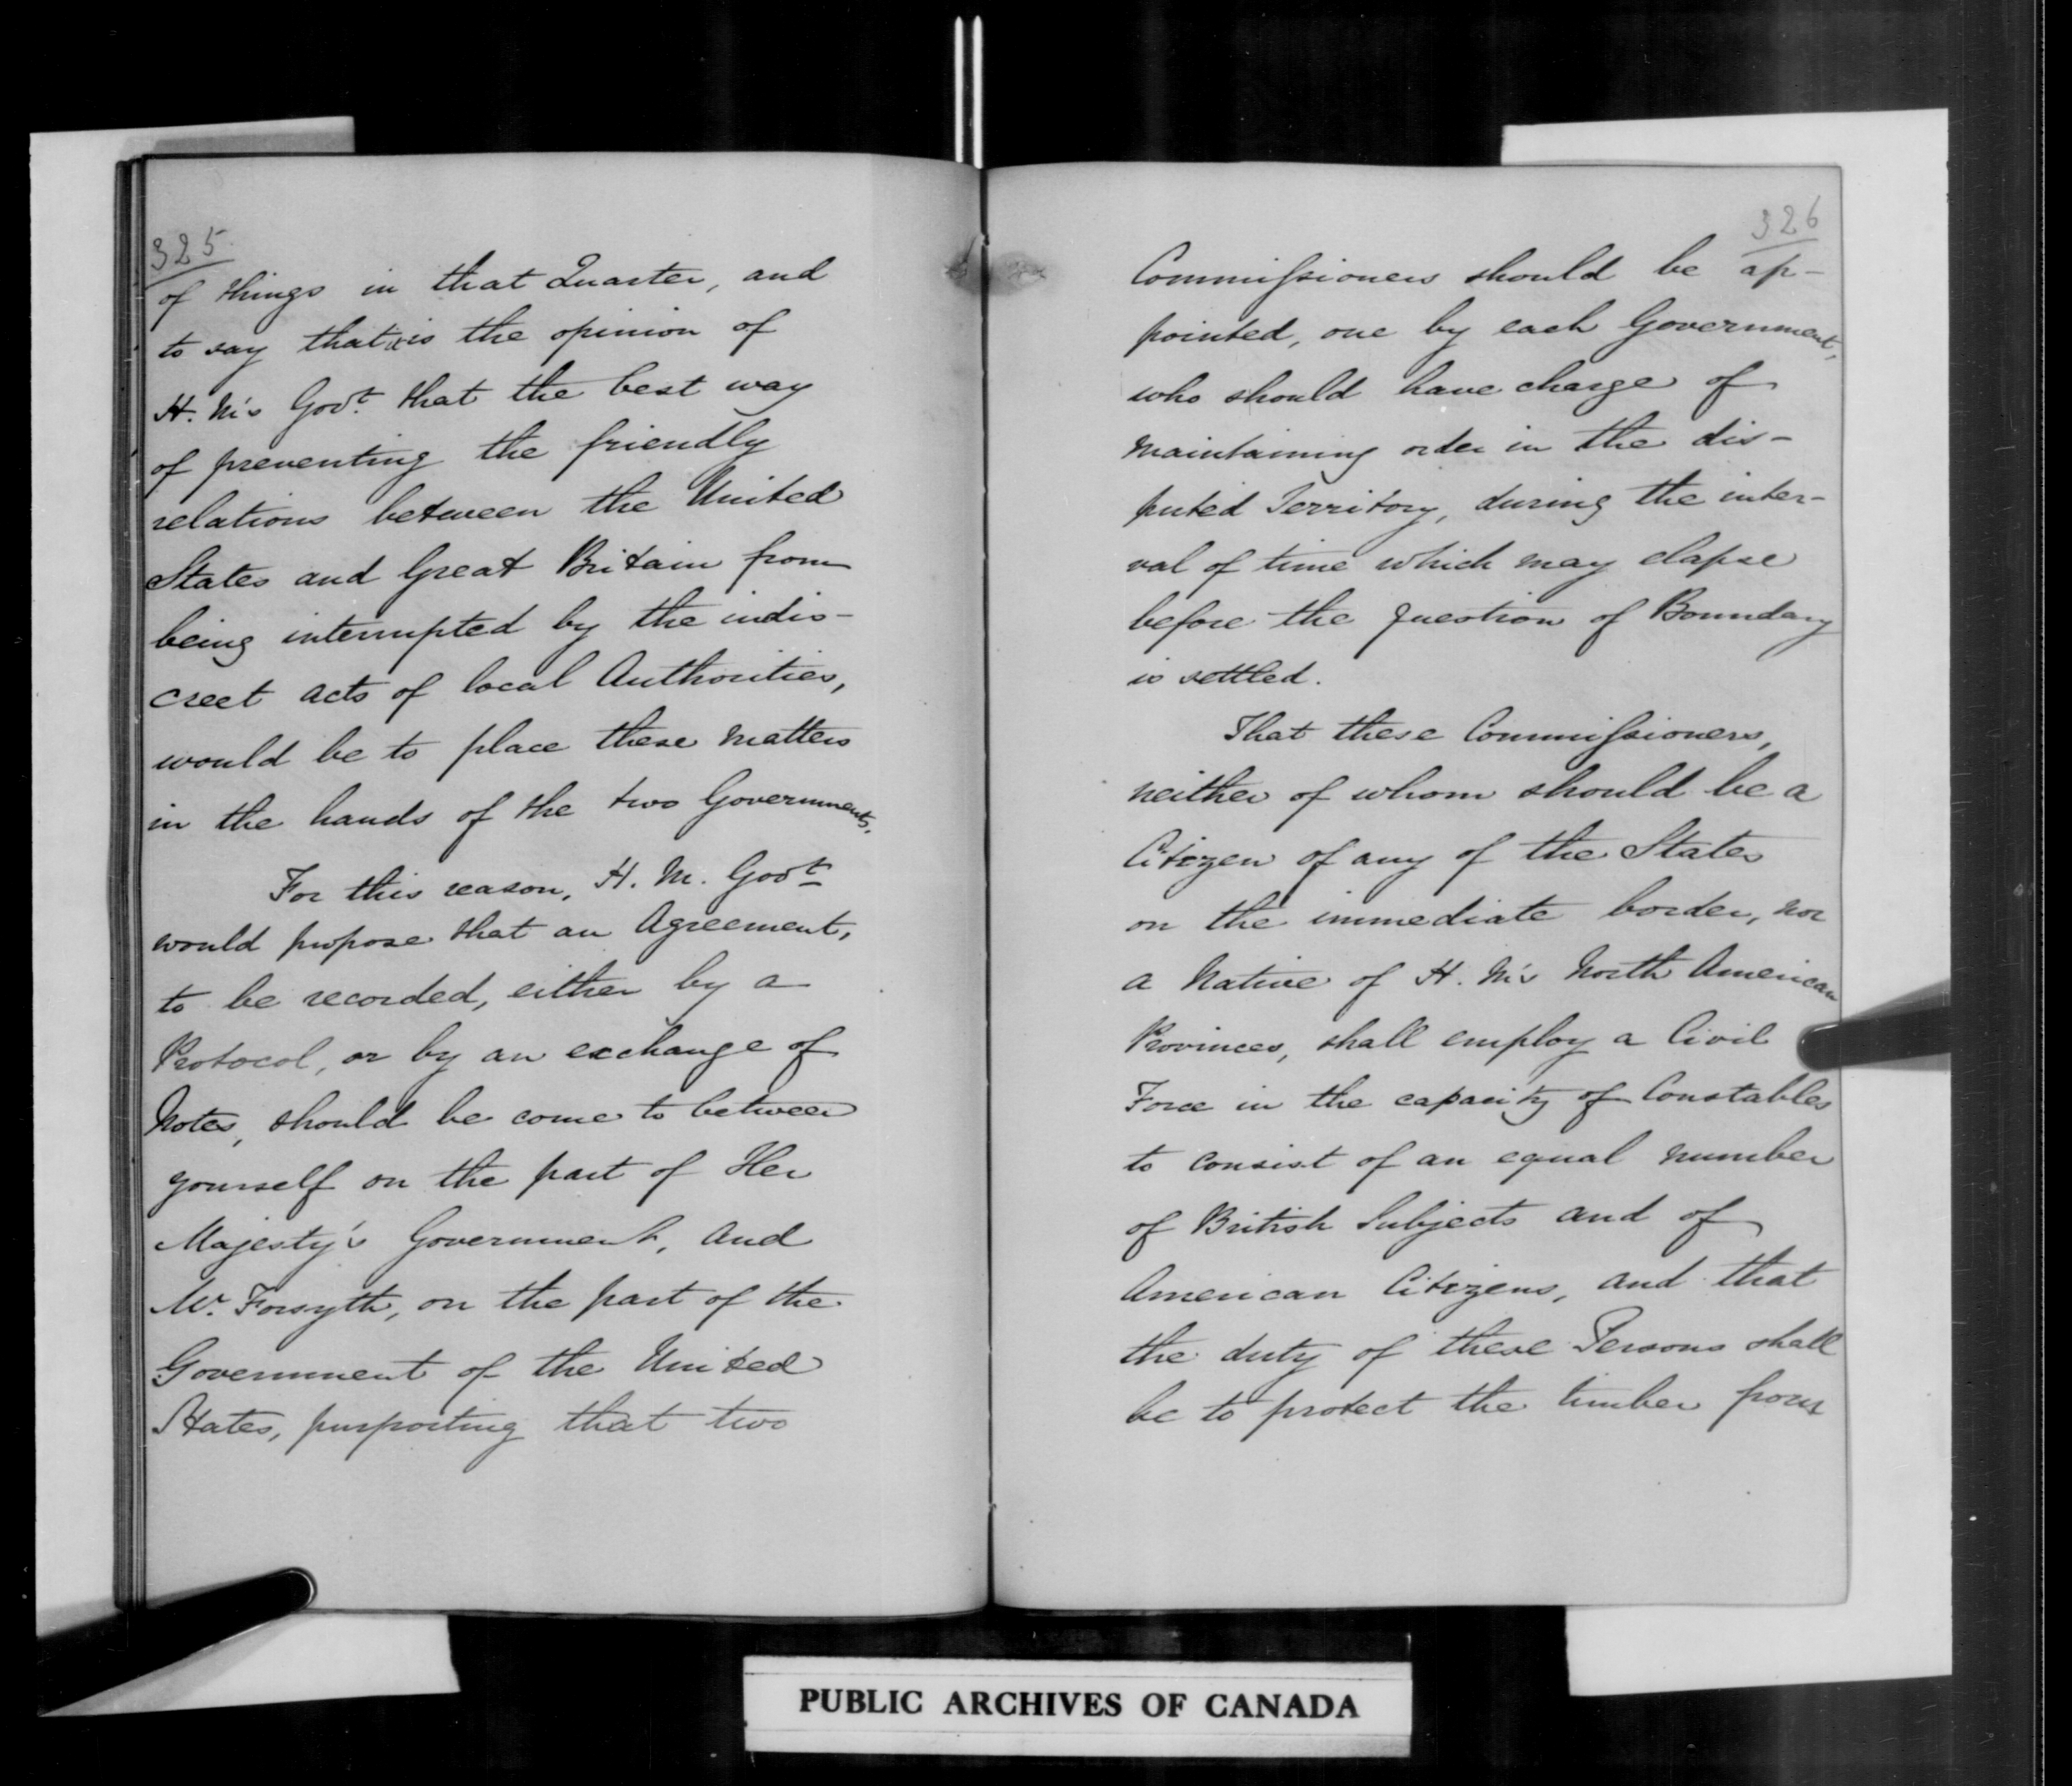 325
of things in that Quarter, and
to say that is the opinion of
H. M's Govt. that the best way
of preventing the friendly
relations between the United
States and Great Britain from
being interrupted by the indis-
creet acts of local Authorities,
would be to place these matters
in the hands of the two Governments.
For this reason, H. M. Govt
would propose that an Agreement,
to be recorded, either by a
Protocol, or by an exchange of
Notes, should be come to between
yourself on the part of Her
Majesty's Government, and
Mr. Forsyth, on the part of the
Government of the United
States, purporting that two
326
Commissioners should be ap-
pointed, one by each Government,
who should have charge of
maintaining order in the dis-
puted Territory, during the inter-
val of time which may elapse
before the question of Boundary
is settled.
That these Commissioners,
neither of whom should be a
Citizen of any of the States
on the immediate border, nor
a Native of H. M's North American
Provinces, shall employ a Civil
Force in the capacity of Constables
to consist of an equal number
of British Subjects and of
American Citizens, and that
the duty of these Persons shall
be to protect the timber from
PUBLIC ARCHIVES OF CANADA